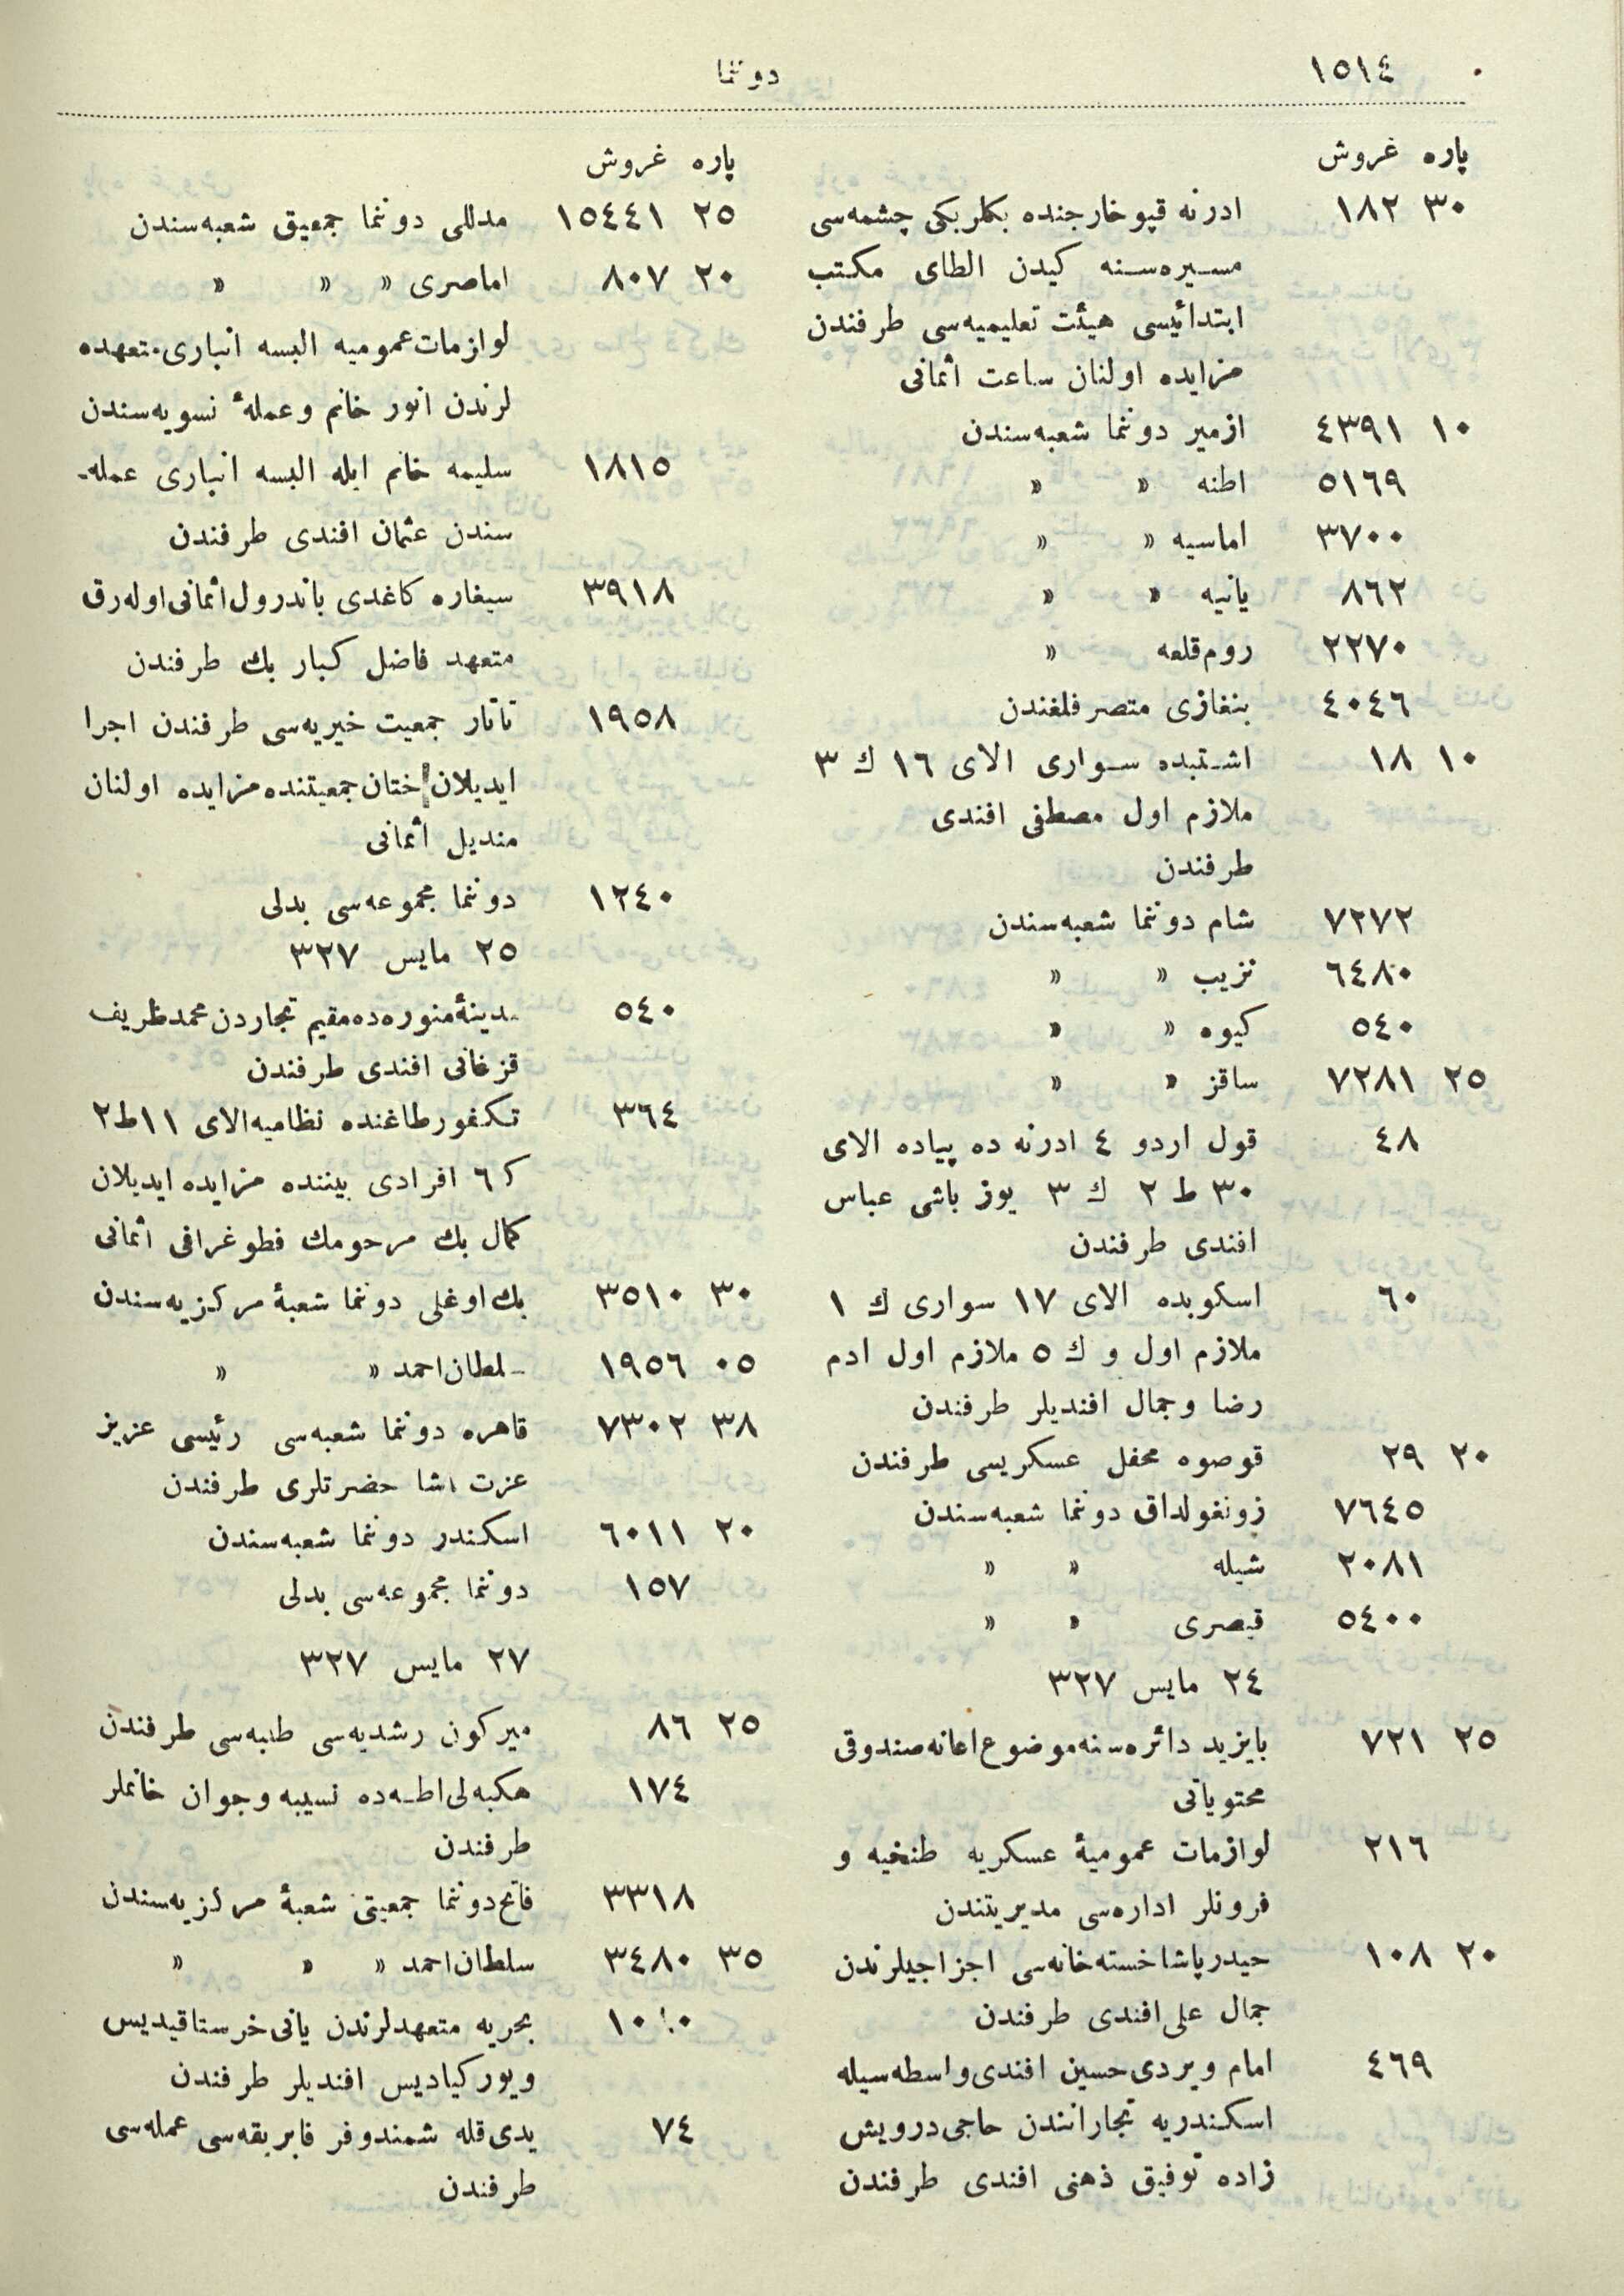 ١٥١٤
دوننما
پاره غروش
٣٠ ١٨٢ ادرنه قپو خارجنده بكلربكی چشمه‌سی
مسیره‌سنه كیدن الطای مكتب
ابتدائیسی هیئت تعلیمیه‌سی طرفندن
مزایده اولنان ساعت اثمانی
١٠ ٤٣٩١ ازمیر دوننما شعبه‌سندن
٥١٦٩ اطنه » »
٣٧٠٠ اماسیه » »
٨٦٢ یانیه » »
٢٢٧٠ روم‌قلعه »
٤٠٤٦ بنغازی متصرفلغندن
١٠ ١٨ اشتبده سواری الای ١٦ ك ٣
ملازم اول مصطفی افندی
طرفندن
٧٢٧٢ شام دوننما شعبه‌سندن
٦٤٨٠ نزیب » »
٥٤٠ كیوه » »
٢٥ ٧٢٨١ ساقز » »
٤٨ قول اردو ٤ ادرنه ده پیاده الای
٣٠ ط ٢ ك ٣ یوز باشی عباس
افندی طرفندن
٦٠ اسكوبده الای ١٧ سواری ك ١
ملازم اول و ك ٥ ملازم اول ادم
رضا وجمال افندیلر طرفندن
٢٠ ٢٩ قوصوه محفل عسكریسی طرفندن
٧٦٤٥ زونغولداق دوننما شعبه‌سندن
٢٠٨١ شیله » »
٥٤٠٠ قیصری » »
٢٤ مایس ٣٢٧
٢٥ ٧٢١ بایزید دائره‌سنه موضوع اعانه صندوقی
محتویاتی
٢١٦ لوازمات عمومیۀ عسكریه طنخیه و
فرونلر اداره‌سی مدیریتندن
٢٠ ١٠٨ حیدرپاشا خسته‌خانه‌سی اجزاجیلرندن
جمال علی افندی طرفندن
٤٦٩ امام ویردی حسین افندی واسطه‌سیله
اسكندریه تجارانندن حاجی درویش
زاده توفیق ذهنی افندی طرفندن
پاره غروش
٢٥ ١٥٤٤١ مدللی دوننما جمعیق شعبه‌سندن
٢٠ ٨٠٧ اماصری » » »
لوازمات عمومیه البسه انباری متعهده
لرندن انور خانم وعملۀ نسویه‌سندن
١٨١٥ سلیمه خانم ایله البسه انباری عمله-
سندن عثمان افندی طرفندن
٣٩١٨ سیغاره كاغدی باندرول اثمانی اوله‌رق
متعهد فاضل كبار بك طرفندن
١٩٥٨ تاتار جمعیت خیریه‌سی طرفندن اجرا
ایدیلان ختان جمعیتنده مزایده اولنان
مندیل اثمانی
١٢٤٠ دوننما مجموعه‌سی بدلی
٢٥ مایس ٣٢٧
٥٤٠ مدینۀ منوره‌ده مقیم تجاردن محمد ظریف
قزغانی افندی طرفندن
٣٦٤ تكفورطاغنده نظامیه الای ١١ ط ٢
ك ٦ افرادی بیننده مزایده ایدیلان
كمال بك مرحومك فطوغرافی اثمانی
٣٠ ٣٥١٠ بك اوغلی دوننما شعبۀ مركزیه‌سندن
٠٥ ١٩٥٦ سلطان احمد » »
٣٨ ٧٣٠٢ قاهره دوننما شعبه‌سی رئیسی عزیز
عزت پاشا حضرتلری طرفندن
٢٠ ٦٠١١ اسكندر دوننما شعبه‌سندن
١٥٧ دوننما مجموعه‌سی بدلی
٢٧ مایس ٣٢٧
٢٥ ٨٦ میركون رشدیه‌سی طلبه‌سی طرفندن
١٧٤ هكبه‌لی اطه‌ده نسیبه وجوان خانملر
طرفندن
٣٣١٨ فاتح دوننما جمعیتی شعبۀ مركزیه‌سندن
٣٥ ٣٤٨٠ سلطان احمد » » »
بحریه متعهدلرندن یانی خرستاقیدیس
ویوركیادیس افندیلر طرفندن
٧٤ یدی قله شمندوفر فابریقه‌سی عمله‌سی
طرفندن